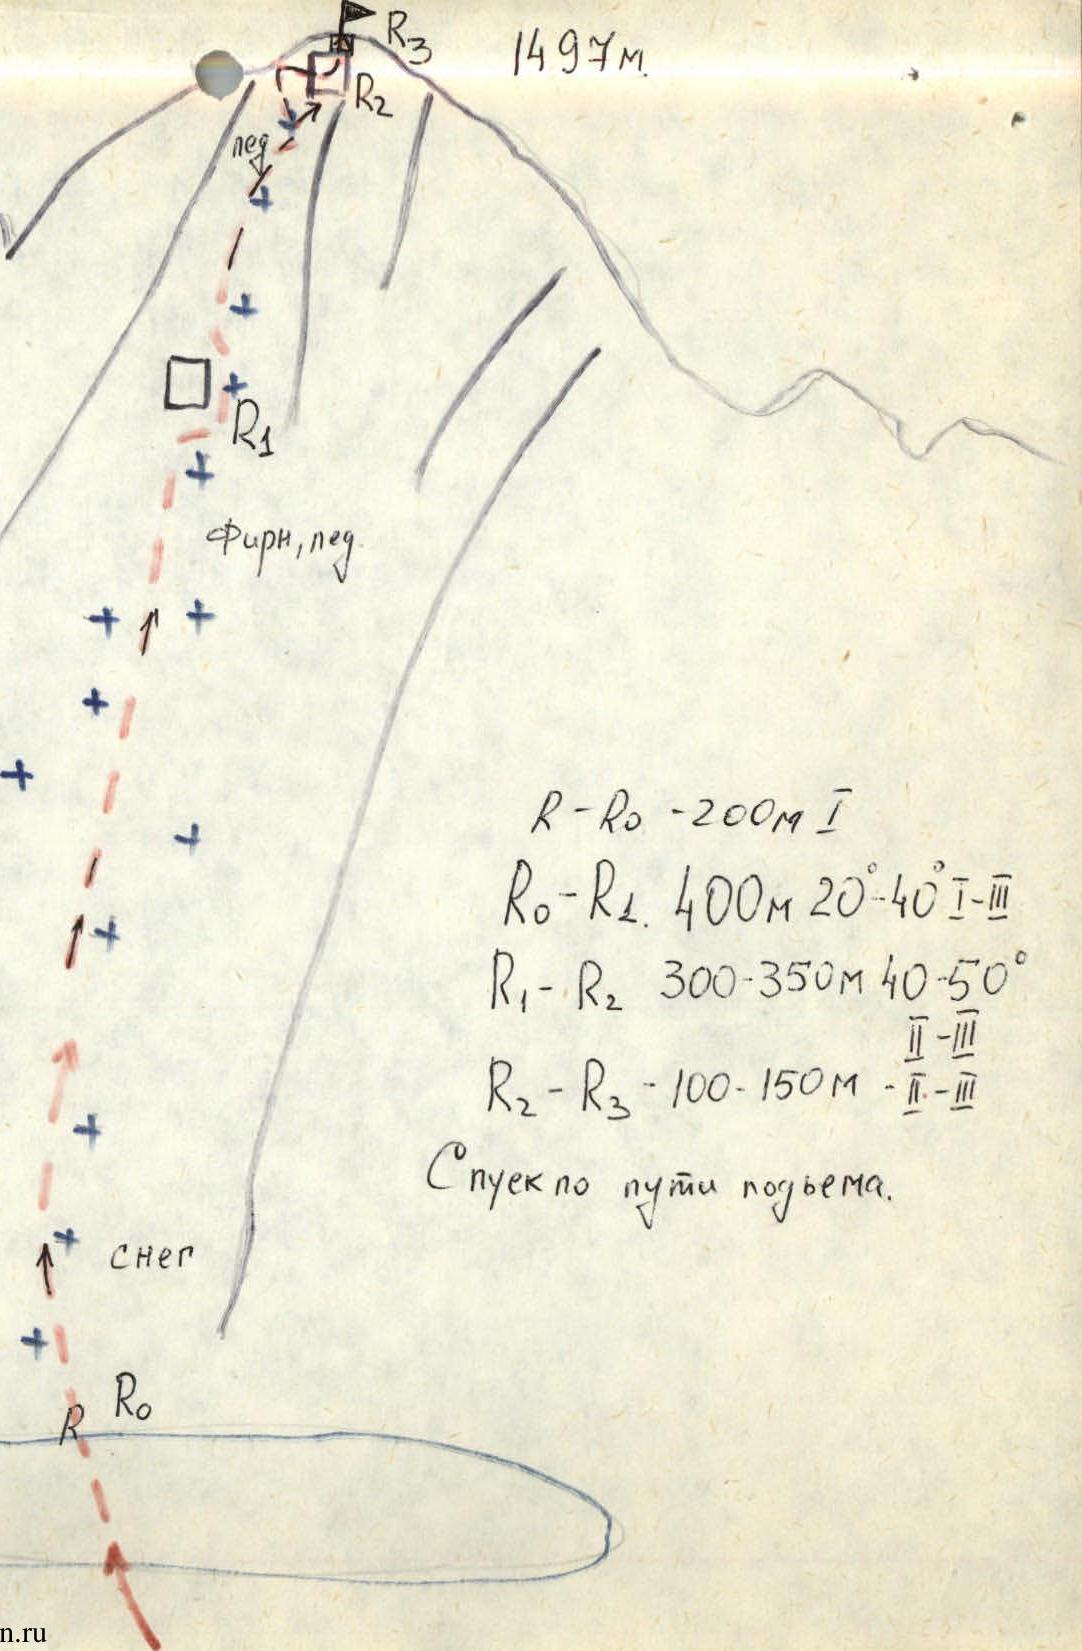 R3
1497м.
R2
лед
R1
Фирн, лед.
R-R0 -200м I
R0-R1. 400м 20°-40° I-III
R1-R2 300-350м 40-50°
II-III
R2-R3-100-150м -II-III
Спуск по пути подьема.
снег
R0
R
n.ru